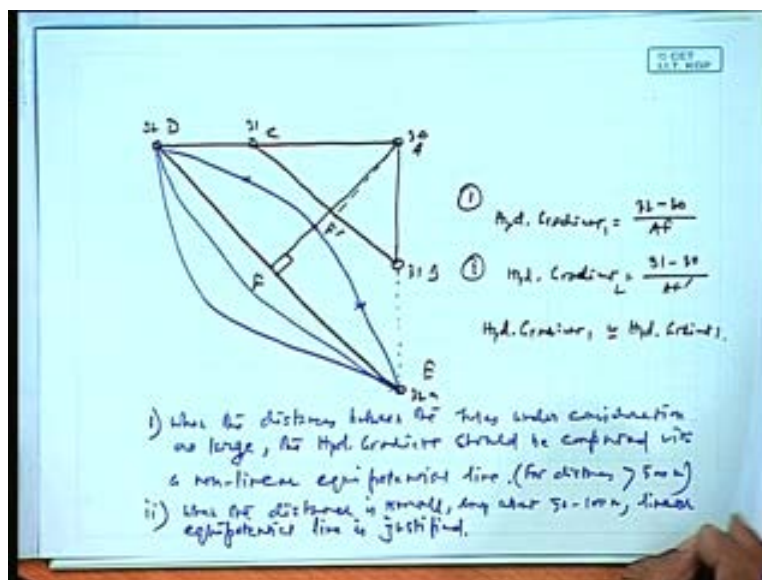 © CET
I.I.T. KGP
32 D
31 C
30 A
F'
F
31 B
E
32 m
① Hyd. Gradient₁ = 32-30 / AF
② Hyd. Gradient₂ = 31-30 / AF'
Hyd. Gradient₁ ≅ Hyd. Gradient₂
i) When the distances between the tubes under consideration
are large, the Hyd. Gradient should be computed with
a non-linear equipotential line. (For distances > 500m)
ii) When the distance is small, say about 50-100m, linear
equipotential line is justified.